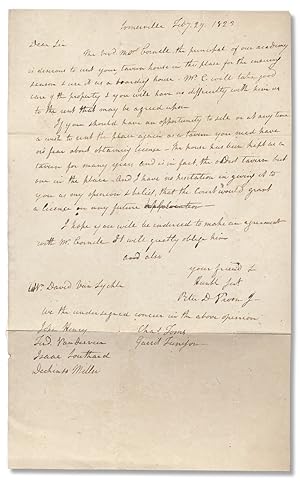 Somerville Feby. 29. 1823
Dear Sir
The bearer Mr. Cornell the principal of our academy
is desirous to rent your tavern house in this place for the ensuing
season & use it as a boarding house - Mr. C will take good
care of the property & you will have no difficulty with him as
to the rent that may be agreed upon
If you should have an opportunity to sell or at any time
a wish to rent the place again as a tavern you need have
no fear about obtaining license. The house has been kept as a
tavern for many years and is in fact, the oldest tavern but
one in the place. And I have no hesitation in giving it to
you as my opinion & belief, that the Court would grant
a licence on any future application
I hope you will be induced to make an agreement
with Mr. Cornell It will greatly oblige him
and also
your friend &
Humb Svt
Peter D. Vroom Jr
Mr. David Van Lychle
We the undersigned concur in the above opinion
John Henry Chas. Toms
Ferd. Vanderveer Garrit Tunison
Isaac Southard
Miller